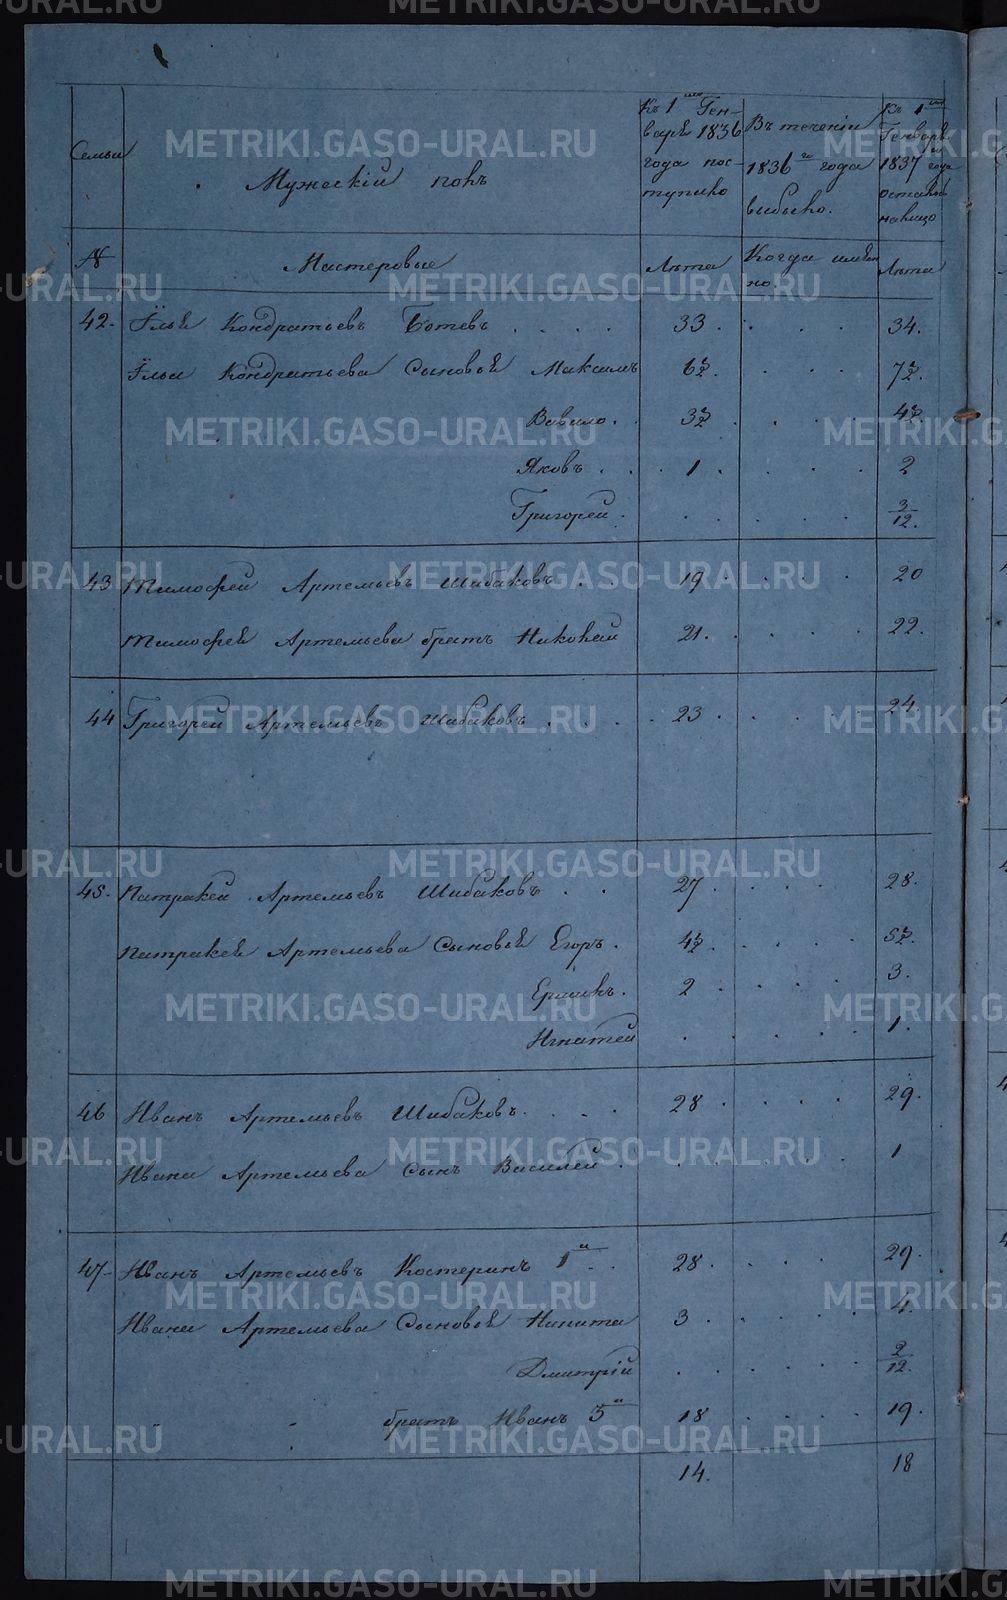 Семьи
Мужескiй полъ
Къ 1му Генваря 1836 года поступило
Въ теченiи 1836го года выбыло.
Къ 1му Генваря 1837 года осталось налицо
№ Мастеровые Лѣта Когда именно. Лѣта
42. Илья Кондратьевъ Ботевъ . . . . 33 . . . 34.
Ильи Кондратьева Сыновья Максимъ 6½. . . . 7½.
Вавило . . 3½ . . . 4½.
Яковъ . . . 1 . . . 2
Григорей . . . . . 3/12.
43 Тимофей Артемьевъ Шибаковъ . . 19 . . . 20
Тимофея Артемьева братъ Николай 21. . . . 22.
44 Григорей Артемьевъ Шибаковъ . . . . 23 . . . . 24.
45. Патракей Артемьевъ Шибаковъ . . 27 . . . . 28.
Патракея Артемьева Сыновья Егоръ . 4½ . . . . 5½.
Ермилъ . 2 . . . . 3.
Игнатей . . . . . 1.
46 Иванъ Артемьевъ Шибаковъ . . . . 28 . . . . 29.
Ивана Артемьева сынъ Василей . . . . . 1
47 Иванъ Артемьевъ Костеринъ 1й . . 28 . . . . 29.
Ивана Артемьева Сыновья Никита 3 . . . . 4.
Дмитрiй . . . . . 2/12.
" " братъ Иванъ 3й 18 . . . . 19.
14. 18
METRIKI.GASO-URAL.RU